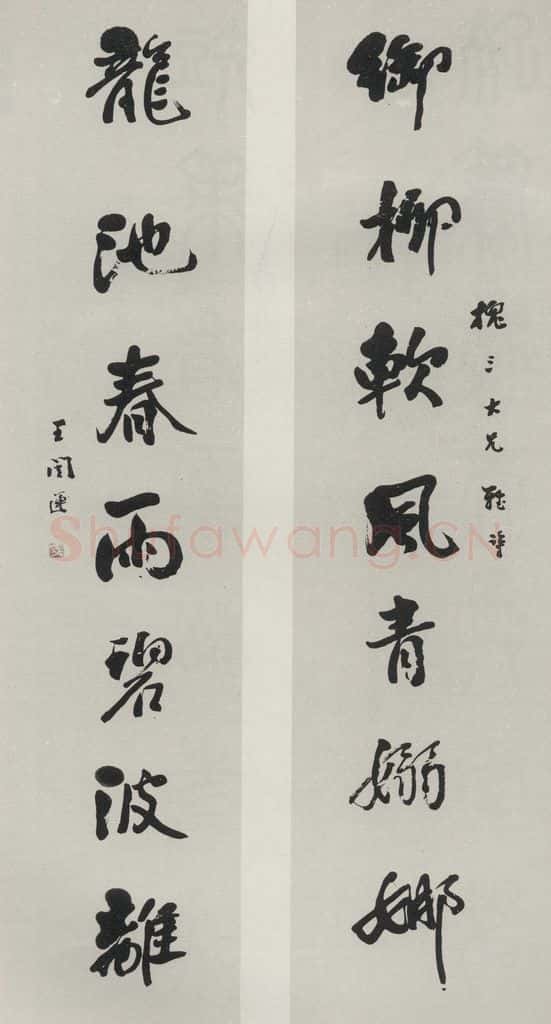 槐三大兄雅評
御柳軟風青嫋娜
龍池春雨碧波離
王闓運
Shufawang.CN